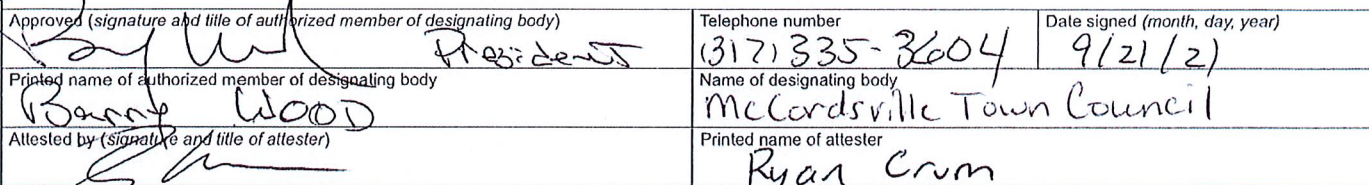 Approved (signature and title of authorized member of designating body)
President
Telephone number
(317) 335-3604
Date signed (month, day, year)
9/21/21
Printed name of authorized member of designating body
Barry WOOD
Name of designating body
McCordsville Town Council
Attested by (signature and title of attester)
Printed name of attester
Ryan Crum